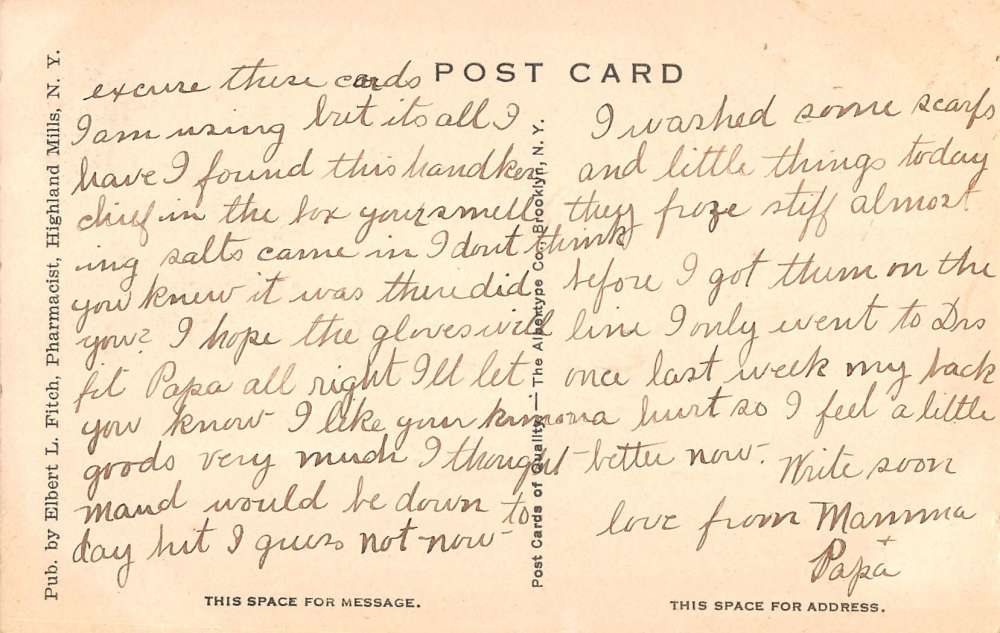 POST CARD
Pub. by Elbert L. Fitch, Pharmacist, Highland Mills, N. Y.
excuse these cards
I am using but its all I
have I found this handker
chief in the box your smell
ing salts came in I dont think
you knew it was there did
you? I hope the gloves will
fit Papa all right Ill let
you know I like your kimona
goods very much I thought
Maud would be down to
day but I guess not now
THIS SPACE FOR MESSAGE.
Post Cards of Quality.—The Albertype Co., Brooklyn, N. Y.
I washed some scarfs
and little things today
they froze stiff almost
before I got them on the
line I only went to Drs
once last week my back
hurt so I feel a little
better now. Write soon
love from Mamma
+
Papa
THIS SPACE FOR ADDRESS.